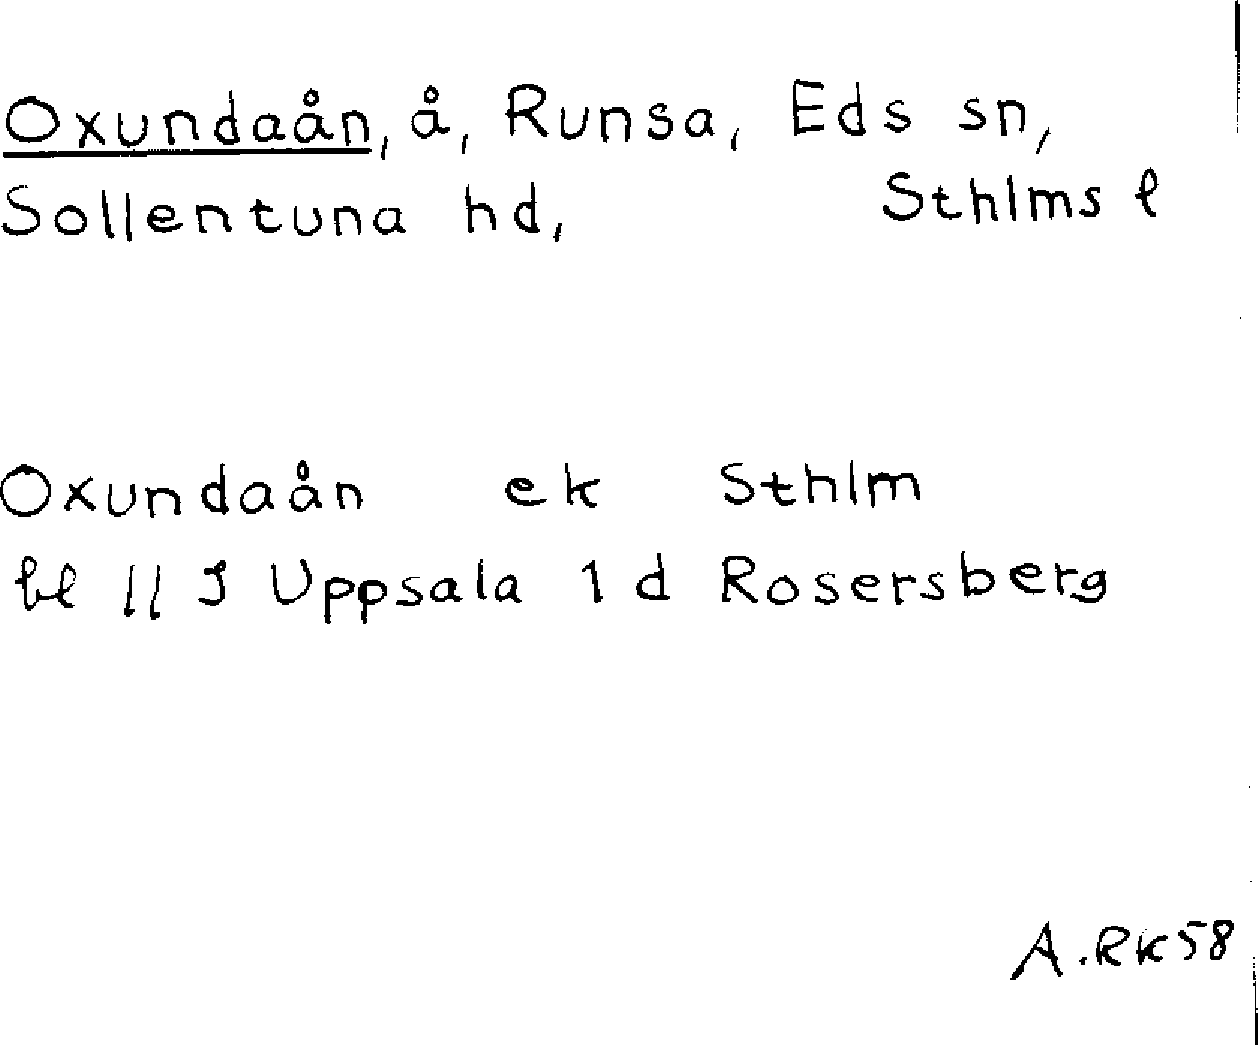 Oxundaån, å, Runsa, Eds sn,
Sollentuna hd, Sthlms l
Oxundaån ek Sthlm
bl 11 I Uppsala 1 d Rosersberg
A. RK 58